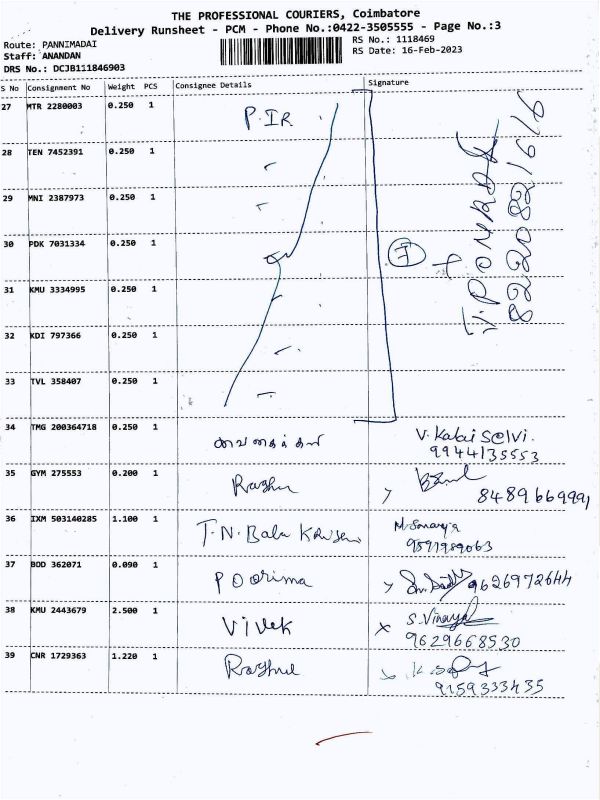 THE PROFESSIONAL COURIERS, Coimbatore
Delivery Runsheet - PCM - Phone No.:0422-3505555 - Page No.:3
Route: PANNIMADAI
Staff: ANANDAN
DRS No.: DCJB111846903
RS No.: 1118469
RS Date: 16-Feb-2023
S No Consignment No Weight PCS Consignee Details Signature
27 MTR 2280003 0.250 1 P.IR
28 TEN 7452391 0.250 1
29 MNI 2387973 0.250 1
30 PDK 7031334 0.250 1
31 KMU 3334995 0.250 1
32 KDI 797366 0.250 1
33 TVL 358407 0.250 1
7
8220821616
34 TMG 200364718 0.250 1 V. Kalai Selvi.
9944135553
35 GYM 275553 0.200 1 Raghu
8489669991
36 IXM 503140285 1.100 1 T.N. Balu
37 BOD 362071 0.090 1 Poorima 9626972644
38 KMU 2443679 2.500 1 Vivek S.Vinayak
9629668530
39 CNR 1729363 1.220 1
9159333435